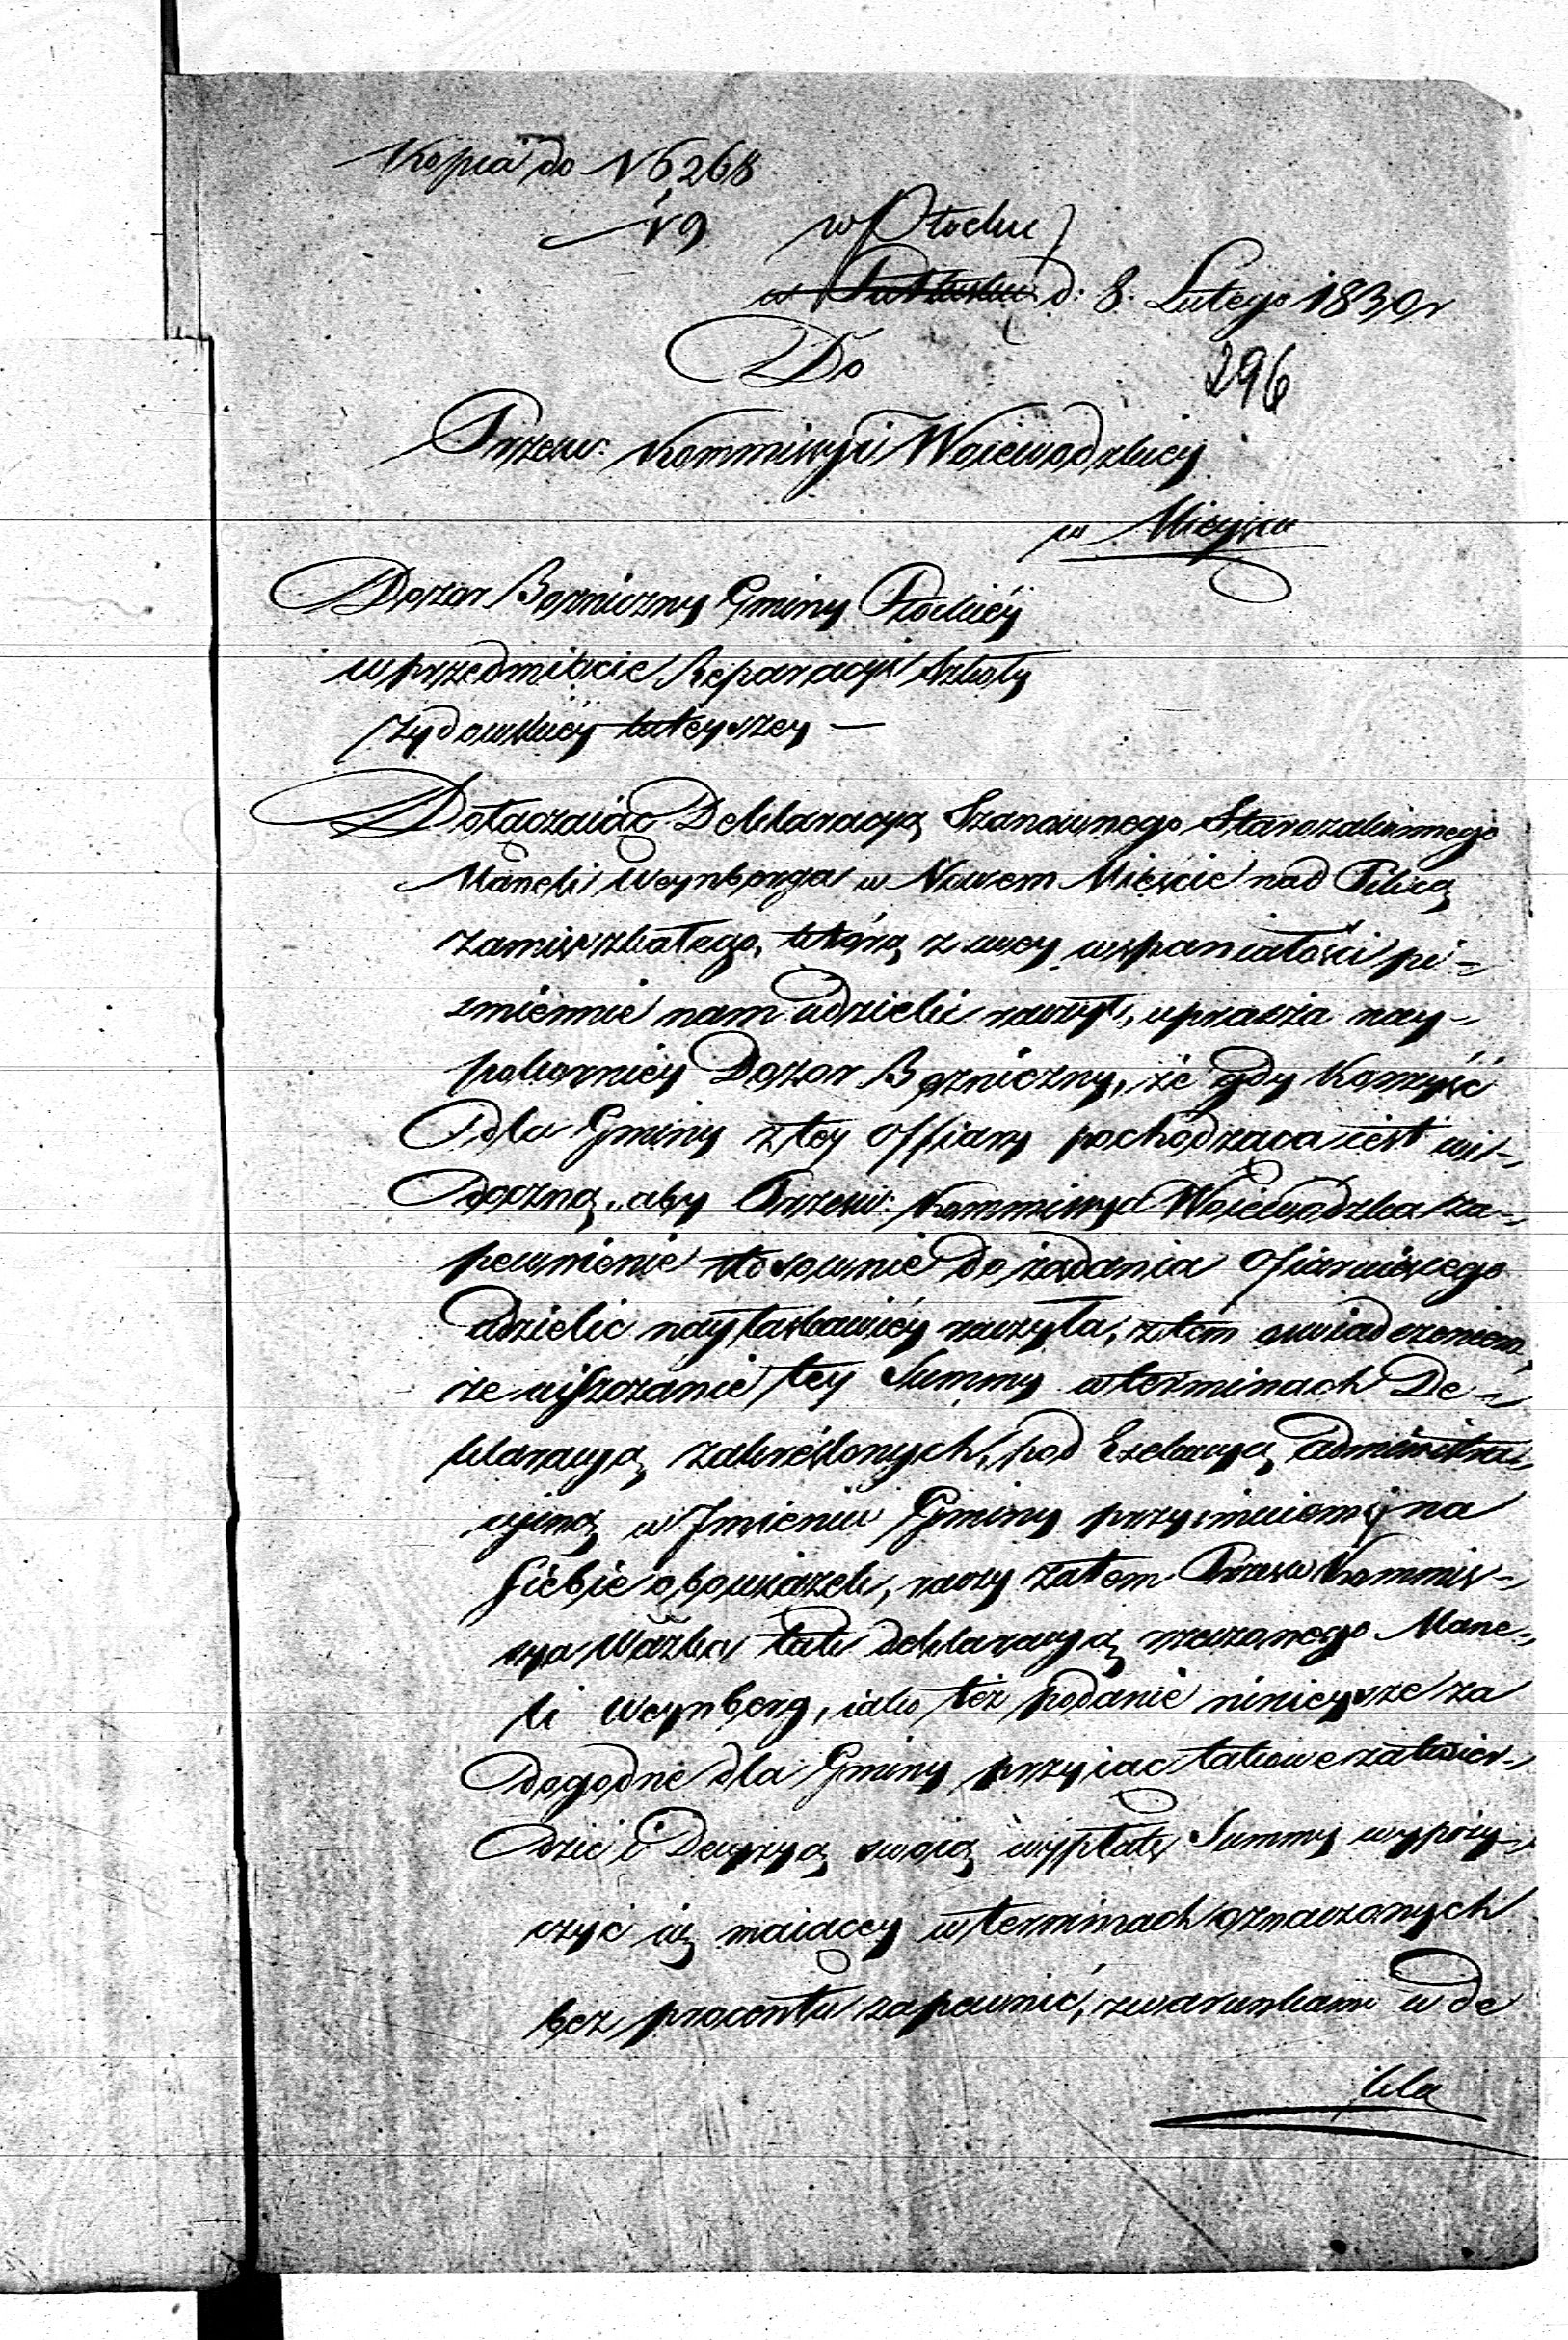 Kopia do N 6,268
N 9 w Płocku
w Pułtusku d: 8. Lutego 1830 r
Do 296
Przesw: Kommissyi Woiewodzkiey
w Mieyscu
Dozor Bożniczny Gminy Płockiéy
w przedmiocie Reparacyi Szkoły
żydowskiey tuteyszey —
Dołączaiąc Deklaracyą Szanownego Starozakonnego
Maneli Weynberga w Nowem Mieście nad Pilicą
zamieszkałego, którą z swey wspaniałości pi-
śmiennie nam udzielić raczył, uprasza nay-
pokorniey Dozor Bożniczny, że gdy korzyść
dla Gminy z tey offiary pochodząca iest wi-
doczną, aby Przesw: Kommissya Woiewodzka za-
pewnienie stosownie do żądania ofiaruiącego
udzielić nayłaskawiéy raczyła, z tém oswiadczeniem,
że uiszczanie tey Summy w terminach De-
klaracyą zakreślonych, pod Exekucyą administra-
cyiną w Imieniu Gminy przyimuiemy na
siebie obowiązek, raczy zatem Przesw Kommis-
sya Wdzka tak deklaracyą rzeczonego Mane-
li Weynberg, iako też podanie ninieysze za
dogodne dla Gminy przyiąć takowe zatwier-
dzić i Decyzyą swoią wypłatę Summy wypoży-
czyć się maiącey w terminach oznaczonych
bez procentu zapewnić, z warunkami w de
kla